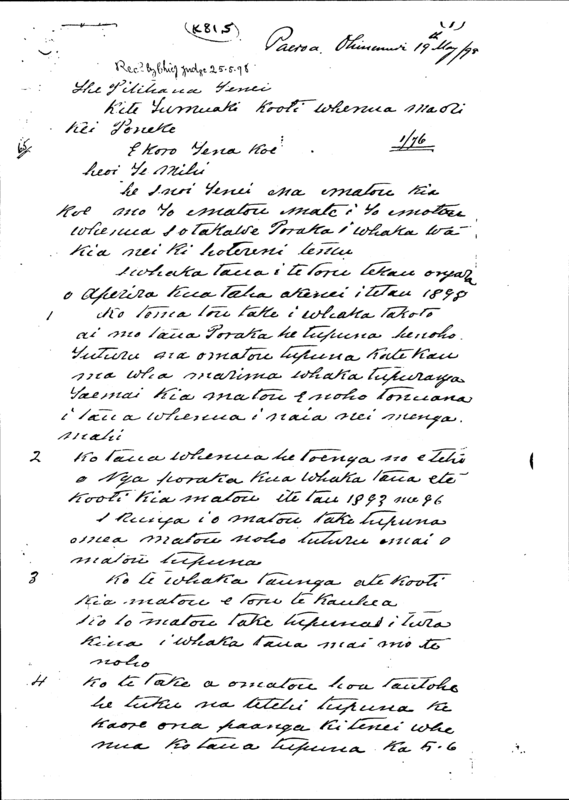 (K815)
(1)
Paeroa, Ohinemuri 19th May/98
Rec'd by Chief Judge 25-5-98
He Pitihana Tenei
Kite Tumuaki Kooti Whenua Maori
Kei Poneke
1/76
E Koro Tena Koe
heoi Te Mihi
he Inoi Tenei na matou kia
koe mo To matou mate i To matou
whenua
Poraka i whaka wa
kia nei ki
I whaka taua i te toru tekau
o Aperira kua taha akenei i te tau 1898
1 Ko toma tou take i whaka takoto
ai mo taua Poraka he tupuna he noho
Tuturu na o matou tupuna
ma wha marima whaka tupuranga
Taemai kia matou e noho tonuana
i taua whenua i naia nei menga
mahi
2 Ko taua whenua he toenga no etehi
o Nga poraka kua whaka taua ete
Kooti kia matou ite tau 1893 me 96
I Runga i o matou take tupuna
omea matou noho tuturu mai o
matou tupuna
3 Ko te whaka taunga ate Kooti
kia matou e toru te kauhea
Ko to matou take tupuna i tura
kina i whaka taua mai mo te
noho
4 Ko te take a omatou hoa tautohe
he tuku na tetehi tupuna ke
kaore ona paanga ki tenei whe
nua Ko taua tupuna Ka 5-6